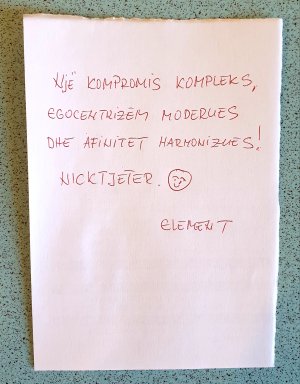 NJË KOMPROMIS KOMPLEKS,
EGOCENTRIZËM MODERUES
DHE AFINITET HARMONIZUES!
NICKTJETËR.
ELEMENT